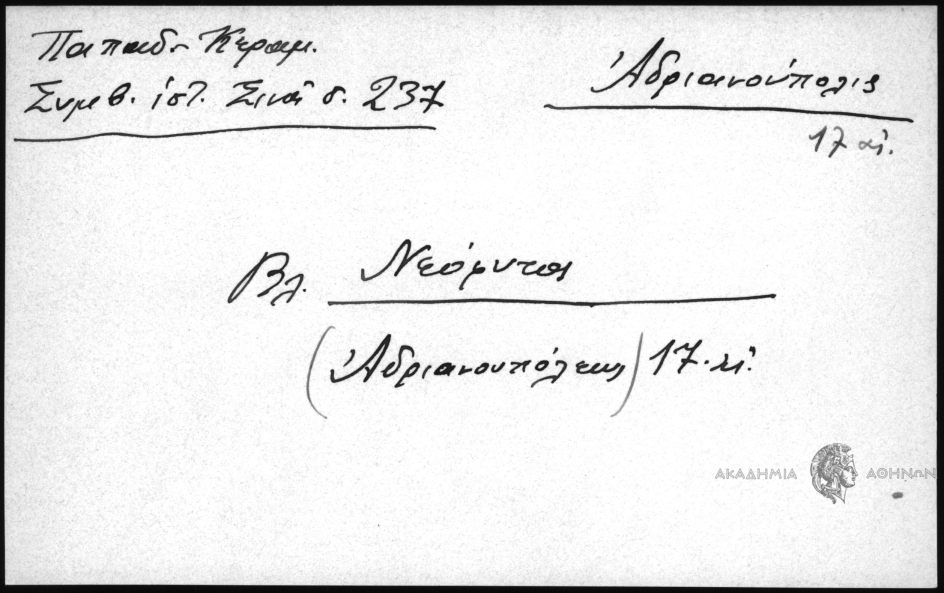 Παπαδ-Κεραμ.
Συμβ. ἱστ. Σινᾶ σ. 237
Ἀδριανούπολις
17 αἰ.
Βλ. Νεόφυτος
(Ἀδριανουπόλεως) 17. αἰ.
ΑΚΑΔΗΜΙΑ ΑΘΗΝΩΝ